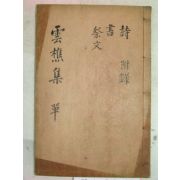 詩
書
祭文
附錄
雲樵集 單